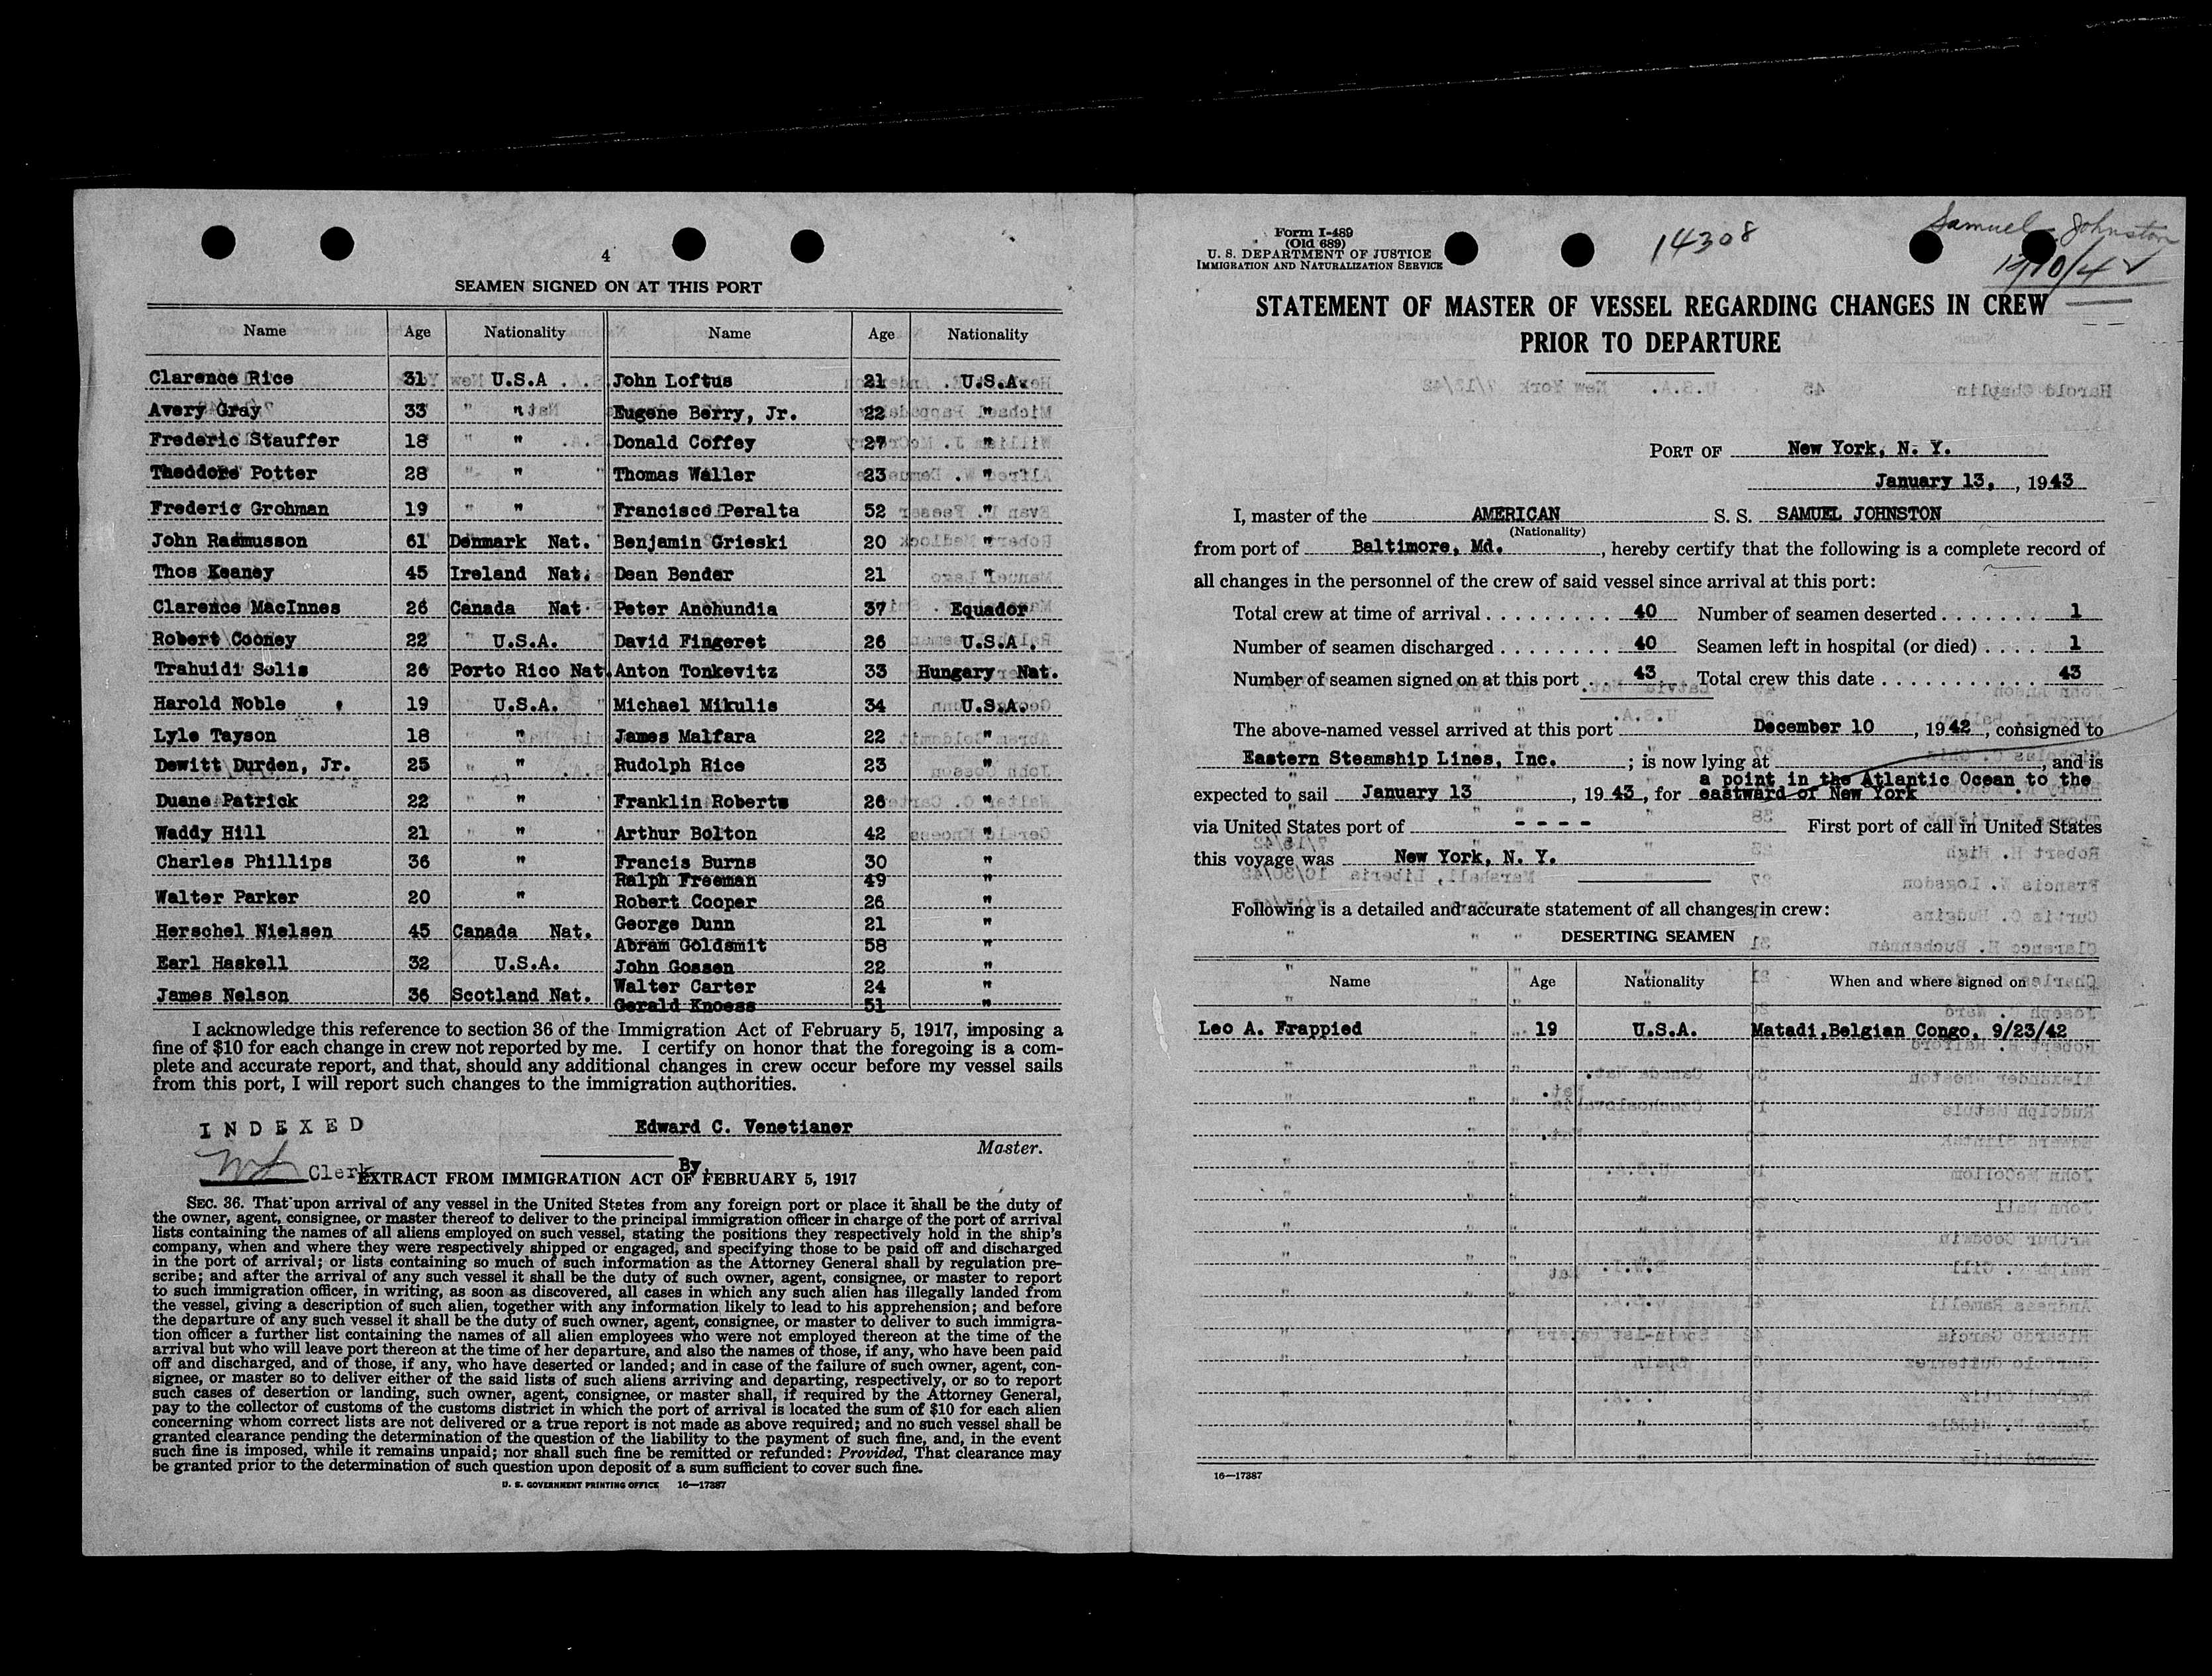 4
SEAMEN SIGNED ON AT THIS PORT
Name Age Nationality Name Age Nationality
Clarence Rice 31 U.S.A. John Loftus 21 U.S.A.
Avery Gray 33 " Eugene Berry, Jr. 22 "
Frederic Stauffer 18 " Donald Coffey 27 "
Theddore Potter 28 " Thomas Waller 23 "
Frederic Grohman 19 " Francisco Peralta 52 "
John Rasmusson 61 Denmark Nat. Benjamin Grieski 20 "
Thos Keaney 45 Ireland Nat. Dean Bender 21 "
Clarence MacInnes 26 Canada Nat. Peter Anchundia 37 Equador
Robert Cooney 22 U.S.A. David Fingeret 26 U.S.A.
Trahuidi Solis 26 Porto Rico Nat. Anton Tonkevitz 33 Hungary Nat.
Harold Noble 19 U.S.A. Michael Mikulis 34 U.S.A.
Lyle Tayson 18 " James Malfara 22 "
Dewitt Durden, Jr. 25 " Rudolph Rice 23 "
Duane Patrick 22 " Franklin Roberts 26 "
Waddy Hill 21 " Arthur Bolton 42 "
Charles Phillips 36 " Francis Burns 30 "
Ralph Freeman 49 "
Walter Parker 20 " Robert Cooper 26 "
George Dunn 21 "
Herschel Nielsen 45 Canada Nat. Abram Goldsmit 58 "
Earl Haskell 32 U.S.A. John Gossen 22 "
James Nelson 36 Scotland Nat. Walter Carter 24 "
Gerald Knoess 51 "
I acknowledge this reference to section 36 of the Immigration Act of February 5, 1917, imposing a
fine of $10 for each change in crew not reported by me. I certify on honor that the foregoing is a com-
plete and accurate report, and that, should any additional changes in crew occur before my vessel sails
from this port, I will report such changes to the immigration authorities.
INDEXED
Edward C. Venetianer
Master.
By,
Clerk
EXTRACT FROM IMMIGRATION ACT OF FEBRUARY 5, 1917
SEC. 36. That upon arrival of any vessel in the United States from any foreign port or place it shall be the duty of
the owner, agent, consignee, or master thereof to deliver to the principal immigration officer in charge of the port of arrival
lists containing the names of all aliens employed on such vessel, stating the positions they respectively hold in the ship's
company, when and where they were respectively shipped or engaged, and specifying those to be paid off and discharged
in the port of arrival; or lists containing so much of such information as the Attorney General shall by regulation pre-
scribe; and after the arrival of any such vessel it shall be the duty of such owner, agent, consignee, or master to report
to such immigration officer, in writing, as soon as discovered, all cases in which any such alien has illegally landed from
the vessel, giving a description of such alien, together with any information likely to lead to his apprehension; and before
the departure of any such vessel it shall be the duty of such owner, agent, consignee, or master to deliver to such immigra-
tion officer a further list containing the names of all alien employees who were not employed thereon at the time of the
arrival but who will leave port thereon at the time of her departure, and also the names of those, if any, who have been paid
off and discharged, and of those, if any, who have deserted or landed; and in case of the failure of such owner, agent, con-
signee, or master so to deliver either of the said lists of such aliens arriving and departing, respectively, or so to report
such cases of desertion or landing, such owner, agent, consignee, or master shall, if required by the Attorney General,
pay to the collector of customs of the customs district in which the port of arrival is located the sum of $10 for each alien
concerning whom correct lists are not delivered or a true report is not made as above required; and no such vessel shall be
granted clearance pending the determination of the question of the liability to the payment of such fine, and, in the event
such fine is imposed, while it remains unpaid; nor shall such fine be remitted or refunded: Provided, That clearance may
be granted prior to the determination of such question upon deposit of a sum sufficient to cover such fine.
U. S. GOVERNMENT PRINTING OFFICE 16—17387
Form I-489
(Old 689)
U. S. DEPARTMENT OF JUSTICE
IMMIGRATION AND NATURALIZATION SERVICE
14308
Samuel Johnston
STATEMENT OF MASTER OF VESSEL REGARDING CHANGES IN CREW
PRIOR TO DEPARTURE
PORT OF New York, N. Y.
January 13, , 1943
I, master of the AMERICAN S. S. SAMUEL JOHNSTON
(Nationality)
from port of Baltimore, Md. , hereby certify that the following is a complete record of
all changes in the personnel of the crew of said vessel since arrival at this port:
Total crew at time of arrival 40 Number of seamen deserted 1
Number of seamen discharged 40 Seamen left in hospital (or died) 1
Number of seamen signed on at this port 43 Total crew this date 43
The above-named vessel arrived at this port December 10 , 1942 , consigned to
Eastern Steamship Lines, Inc. ; is now lying at , and is
a point in the Atlantic Ocean to the
expected to sail January 13 , 1943 , for eastward of New York
via United States port of - - - - First port of call in United States
this voyage was New York, N. Y.
Following is a detailed and accurate statement of all changes in crew:
DESERTING SEAMEN
Name Age Nationality When and where signed on
Leo A. Frappied 19 U.S.A. Matadi,Belgian Congo, 9/23/42
16—17387